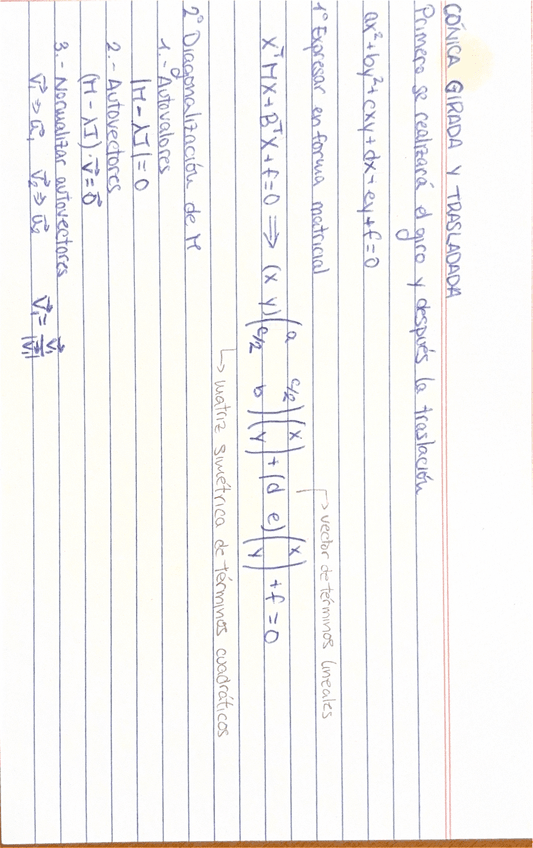 CÓNICA GIRADA Y TRASLADADA
Primero se realizará el giro y después la traslación
ax²+by²+cxy+dx+ey+f=0
1º Expresar en forma matricial
→ vector de términos lineales
XᵀMX+BᵀX+f=0 ⟹ (x y)(a c/2 c/2 b)(x y)+(d e)(x y)+f=0
↳ matriz simétrica de términos cuadráticos
2º Diagonalización de M
1.- Autovalores
|M-λI|=0
2.- Autovectores
(M-λI)·v⃗=0⃗
3.- Normalizar autovectores
v⃗₁⇒u⃗₁ v⃗₂⇒u⃗₂ v⃗₁=v⃗₁/|v⃗₁|